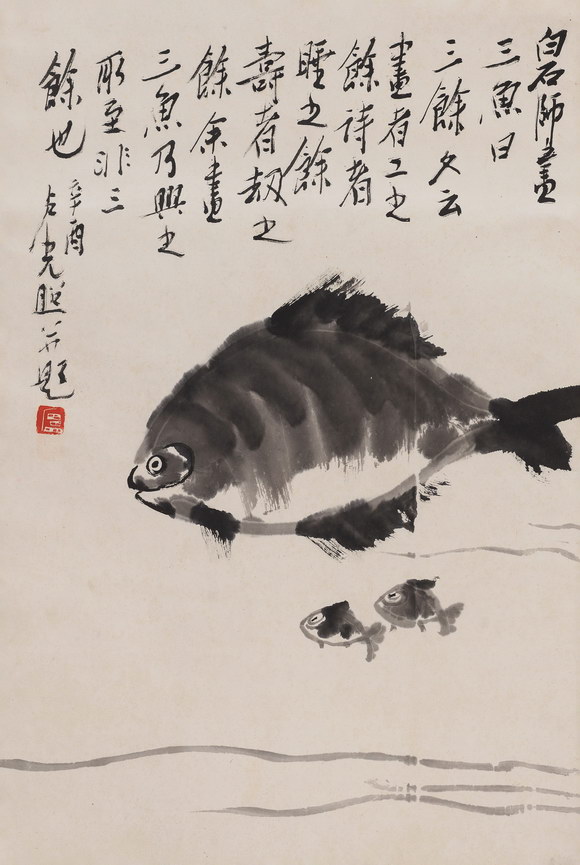 白石師畫
三魚曰
三餘又云
畫者工之
餘詩者
睡之餘
壽者劫之
餘余畫
三魚乃興之
所至非三
餘也
辛酉
光照并題